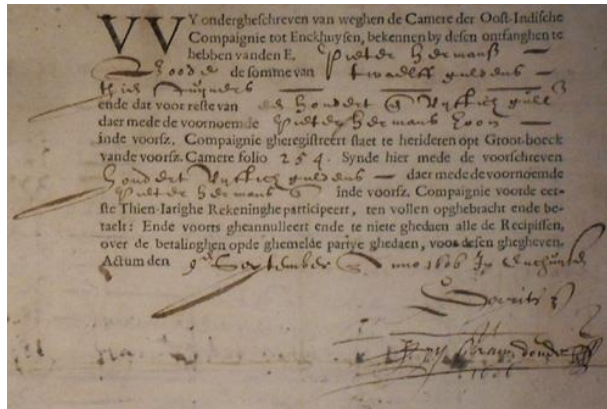 WY ondergheschreven van weghen de Camere der Oost-Indische
Compagnie tot Enckhuysen, bekennen by desen ontfanghen te
hebben vanden E. Pieter Hermansz
de somme van twaelff guldens
thien stuyvers
ende dat voor reste van hondert vyfftich gull
daer mede de voornoemde Pieter Hermans
inde voorsz. Compagnie gheregistreert staet te herideren opt Groot-boeck
vande voorsz. Camere folio 254. Synde hier mede de voorschreven
hondert vyfftich guldens daer mede de voornoemde
Pieter Hermans inde voorsz. Compagnie voorde eer-
ste Thien-Iarighe Rekeninghe participeert, ten vollen opghebracht ende be-
taelt: Ende voorts gheannulleert ende te niete ghedaen alle de Recipissen,
over de betalinghen opde ghemelde partye ghedaen, voor desen ghegheven.
Actum den 9 September Anno 1606 In Enchuysen
1606